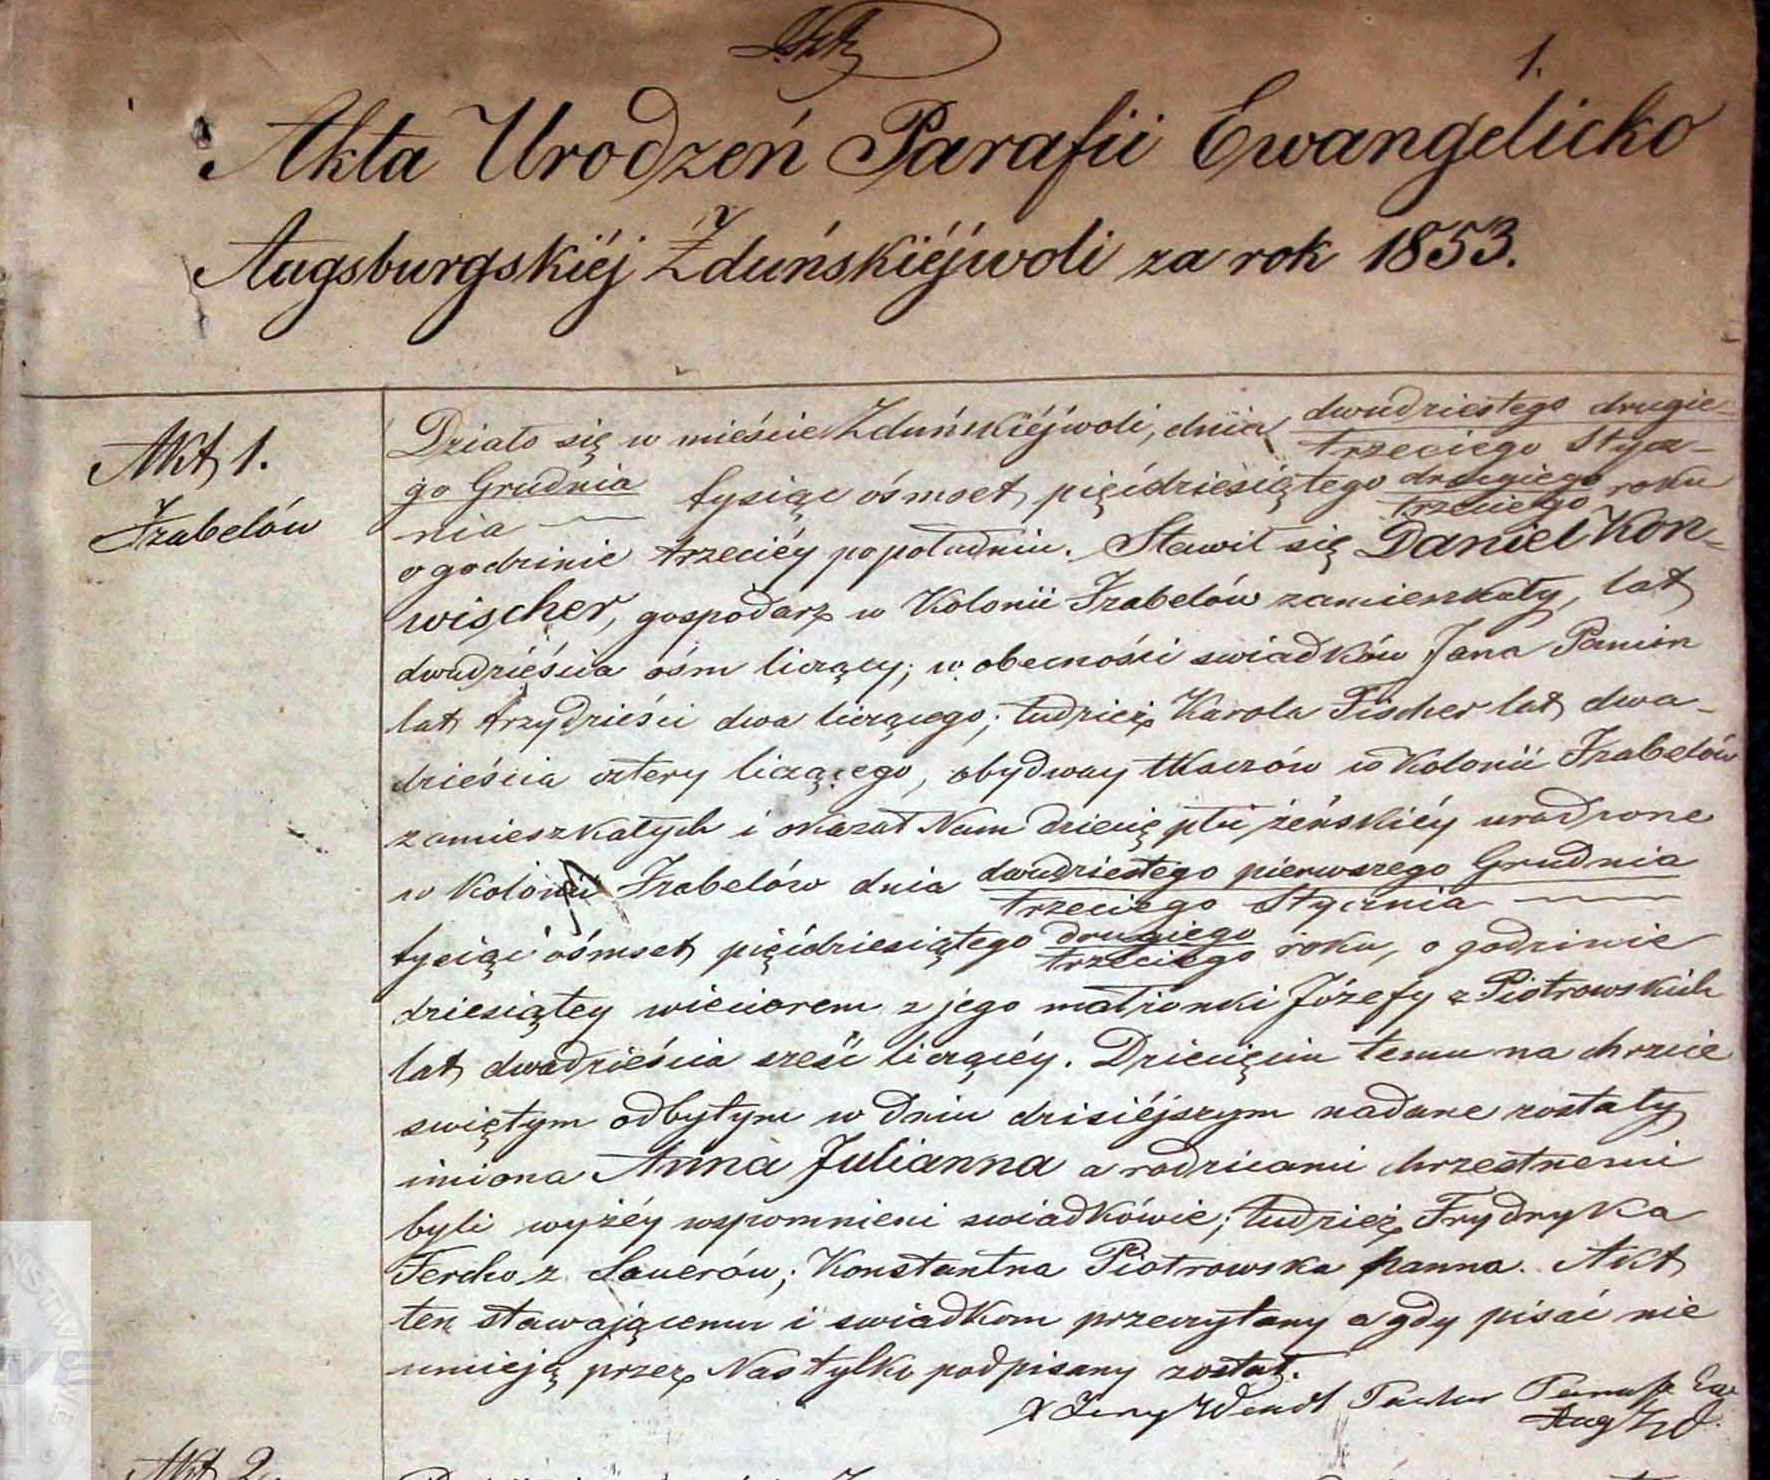 1.
Akta Urodzeń Parafii Ewangelicko
Augsburgskiéj Zduńskiéjwoli za rok 1853.
Akt 1.
Izabelów
Działo się w mieście Zduńskiéjwoli, dnia dwudziestego drugie-
trzeciego Stycz-
go Grudnia tysiąc ośmset pięćdziesiątego drugiego roku
nia trzeciego
o godzinie trzeciéy popołudniu. Stawił się Daniel Kon-
wischer, gospodarz w Kolonii Izabelów zamieszkały, lat
dwadzieścia ośm liczący; w obecności swiadków Jana
lat trzydzieści dwa liczącego; tudzież Karola Fischer lat dwa-
dzieścia cztery liczącego, obydwuy tkaczów w Kolonii Izabelów
zamieszkałych i okazał Nam dziecię płci żeńskiéy urodzone
w Kolonii Izabelów dnia dwudziestego pierwszego Grudnia
trzeciego Stycznia
tysiąc ośmset pięćdziesiątego drugiego roku, o godzinie
trzeciego
dziesiątey wieczorem z jego małżonki Józefy z Piotrowskich
lat dwadzieścia sześć liczącéy. Dziecięciu temu na chrzcie
swiętym odbytym w dniu dzisiéjszym nadane zostały
imiona Anna Julianna a rodzicami chrzestnemi
byli wyżéy wspomnieni swiadkówie; tudzież Frydryka
Fercho z Sauerów; Konstantna Piotrowska panna. Akt
ten stawającemu i swiadkom przeczytany a gdy pisać nie
umieją przez Nas tylko podpisany został.
X Jerzy Wendt Pastor
Aug
Akt 2.